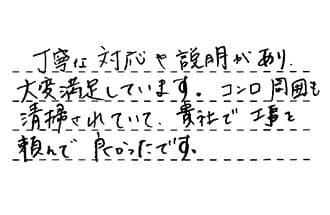 丁寧な対応や説明があり、
大変満足しています。コンロ周囲も
清掃されていて、貴社で工事を
頼んで良かったです。